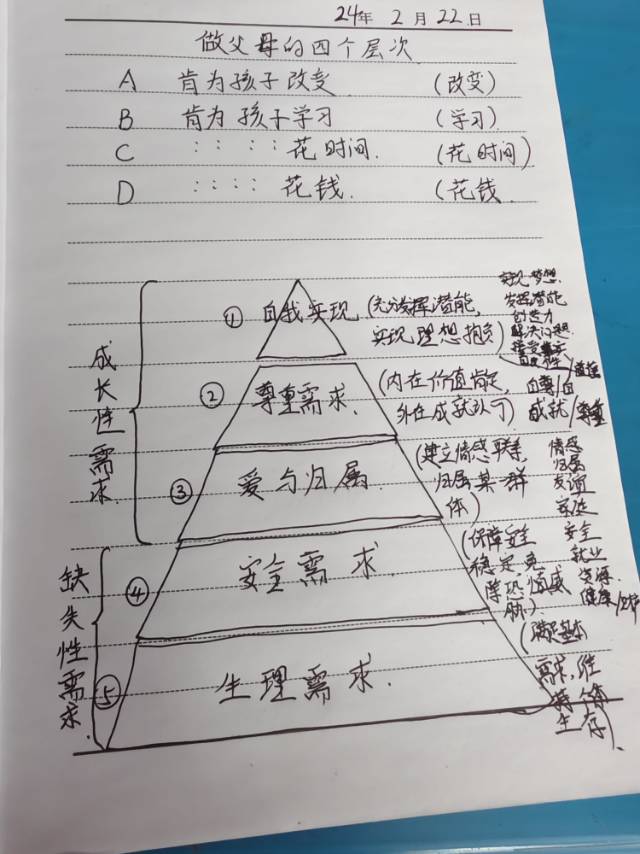 24年 2月 22.日
做父母的四个层次
A 肯为孩子改变 (改变)
B 肯为孩子学习 (学习)
C :: :: 花时间. (花时间)
D :: :: 花钱. (花钱.
成长性需求
① 自我实现 (充分发挥潜能,
实现理想抱负)
实现梦想.
发挥潜能
创造力
解决问题.
② 尊重需求. (内在价值肯定,
外在成就认可)
自尊/自
成就/尊重
③ 爱与归属. (建立情感联系,
归属某一群
体)
情感
归属
友谊
家庭
缺失性需求.
④ 安全需求. (保障安全
稳定免
除恐惧威
胁)
安全
就业
资源.
健康/
⑤ 生理需求. (满足基本
需求,维
持个体
生存)